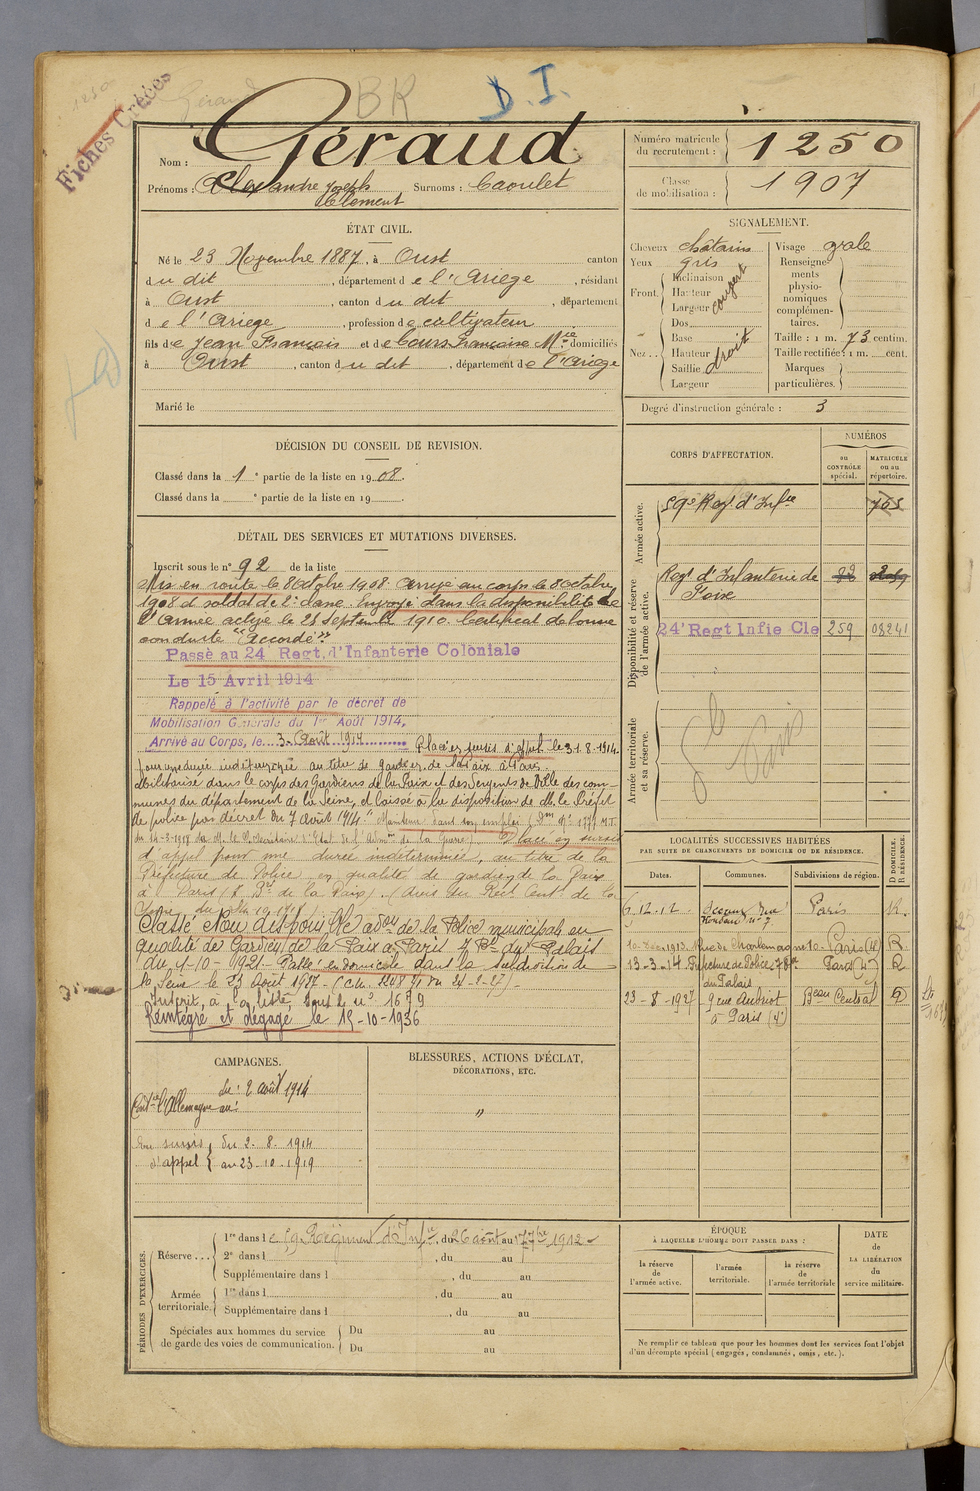 Fiches Créées
1250
Géraud
BR
D. I.
Nom : Géraud
Prénoms : Alexandre Joseph Clément Surnoms : Caoulet
Numéro matricule du recrutement : 1250
Classe de mobilisation : 1907
ÉTAT CIVIL.
Né le 23 Novembre 1887, à Oust canton
du dit, département de l'Ariège, résidant
à Oust, canton du dit, département
de l'Ariège, profession de cultivateur
fils de Jean François et de Cours Françoise Mie domiciliés
à Oust, canton du dit, département de l'Ariège
Marié le
SIGNALEMENT.
Cheveux châtains
Yeux gris
Front. Inclinaison
Hauteur
Largeur
Nez.. Dos
Base
Hauteur droit
Saillie
Largeur
Visage ovale
Renseignements physionomiques complémentaires.
Taille : 1 m. 73 centim.
Taille rectifiée : 1 m. cent.
Marques particulières.
Degré d'instruction générale : 3
DÉCISION DU CONSEIL DE REVISION.
Classé dans la 1e partie de la liste en 1908.
Classé dans la e partie de la liste en 19
DÉTAIL DES SERVICES ET MUTATIONS DIVERSES.
Inscrit sous le n° 92 de la liste
Mis en route le 8 Octobre 1908. Arrivé au corps le 8 Octobre
1908 et soldat de 2e classe. Envoyé dans la disponibilité de
l'Armée active le 25 Septembre 1910. Certificat de bonne
conduite "Accordé"
Passé au 24 Regt d'Infanterie Coloniale
Le 15 Avril 1914
Rappelé à l'activité par le décret de
Mobilisation Générale du 1er Août 1914.
Arrivé au Corps, le 3 Août 1914 Placé en sursis d'appel le 31.8.1914
pour une durée indéterminée au titre de gardien de la Paix à Paris.
Militarisé dans le corps des Gardiens de la Paix et des Sergents de Ville des com-
munes du département de la Seine, et laissé à la disposition de M. le Préfet
de police par décret du 7 Août 1914. Maintenu dans son emploi
Placé en sursis
d'appel pour une durée indéterminée, au titre de la
Préfecture de Police en qualité de gardien de la Paix
à Paris (7 Bd de la Paix)
Classé Non disponible de la Police municipale en
qualité de Gardien de la Paix à Paris 7 Bd du Palais
du 1-10-1921 - Passé en domicile dans la subdivision de
la Seine le 23 Août 1927
Inscrit à la liste sous le n° 1679
Réintégré et dégagé le 15-10-1936
CORPS D'AFFECTATION.
NUMÉROS
au CONTRÔLE spécial.
MATRICULE ou au répertoire.
Armée active.
59e Reg. d'Infie 705
Disponibilité et réserve de l'armée active.
Regt d'Infanterie de Foix
24e Regt Infie Cle 259 08241
Armée territoriale et sa réserve.
Paris
LOCALITÉS SUCCESSIVES HABITÉES
PAR SUITE DE CHANGEMENTS DE DOMICILE OU DE RÉSIDENCE.
Dates. Communes. Subdivisions de région. D. DOMICILE. R. RÉSIDENCE.
6.12.12 Sceaux Rue Houdan n° 7 Paris R.
10 Déc. 1913 Rue de Charlemagne 10 Paris (4e) R
13-3-14 Préfecture de Police 7 Bd du Palais Paris (4e) R
23-8-1927 9 rue Aubriot à Paris (4e) Beau Central D
CAMPAGNES.
Contre l'Allemagne du : 2 août 1914
au :
En sursis d'appel du 2.8.1914
au 23-10-1919
BLESSURES, ACTIONS D'ÉCLAT,
DÉCORATIONS, ETC.
"
PÉRIODES D'EXERCICES.
Réserve ... 1re dans le 59 Régiment d'Infie, du 26 août au 17 7bre 1912
2e dans l , du au
Supplémentaire dans l , du au
Armée territoriale. 1re dans l , du au
Supplémentaire dans l , du au
Spéciales aux hommes du service de garde des voies de communication. Du au
Du au
ÉPOQUE
À LAQUELLE L'HOMME DOIT PASSER DANS :
la réserve de l'armée active.
l'armée territoriale.
la réserve de l'armée territoriale
DATE de LA LIBÉRATION du service militaire.
Ne remplir ce tableau que pour les hommes dont les services font l'objet
d'un décompte spécial (engagés, condamnés, omis, etc.).